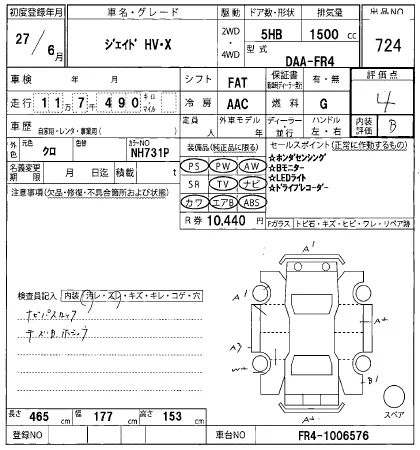 初度登録年月 車名・グレード 駆動 ドア数・形状 排気量 出品NO
27/6月 ジェイド HV・X 2WD・4WD 5HB 1500cc 724
型式 DAA-FR4
車検 年 月 シフト FAT 保証書 有・無 評価点
走行 11万7千490 キロ・マイル 冷房 AAC 燃料 G 4
車歴 自家用・レンタ・事業用( ) 定員 人 外車モデル 年 ディーラー・並行 ハンドル 左・右 内装評価 B
外色 元色 クロ 色替 カラーNO NH731P 装備品(純正品に限る) セールスポイント(正常に作動するもの)
名義変更期限 月 日迄 積載 t PS PW AW ★ホンダセンシング
注意事項(欠品・修復・不具合箇所および状態) SR TV ナビ ★Bモニター
カワ エアB ABS ★LEDライト
★ドライブレコーダー
R券 10,440円 Fガラス トビ石・キズ・ヒビ・ワレ・リペア跡
検査員記入 内装(汚レ・スレ・キズ・キレ・コゲ・穴
A1
A1
A2
A3
W2
B1
スペア
長さ 465cm 幅 177cm 高さ 153cm
登録NO 車台NO FR4-1006576